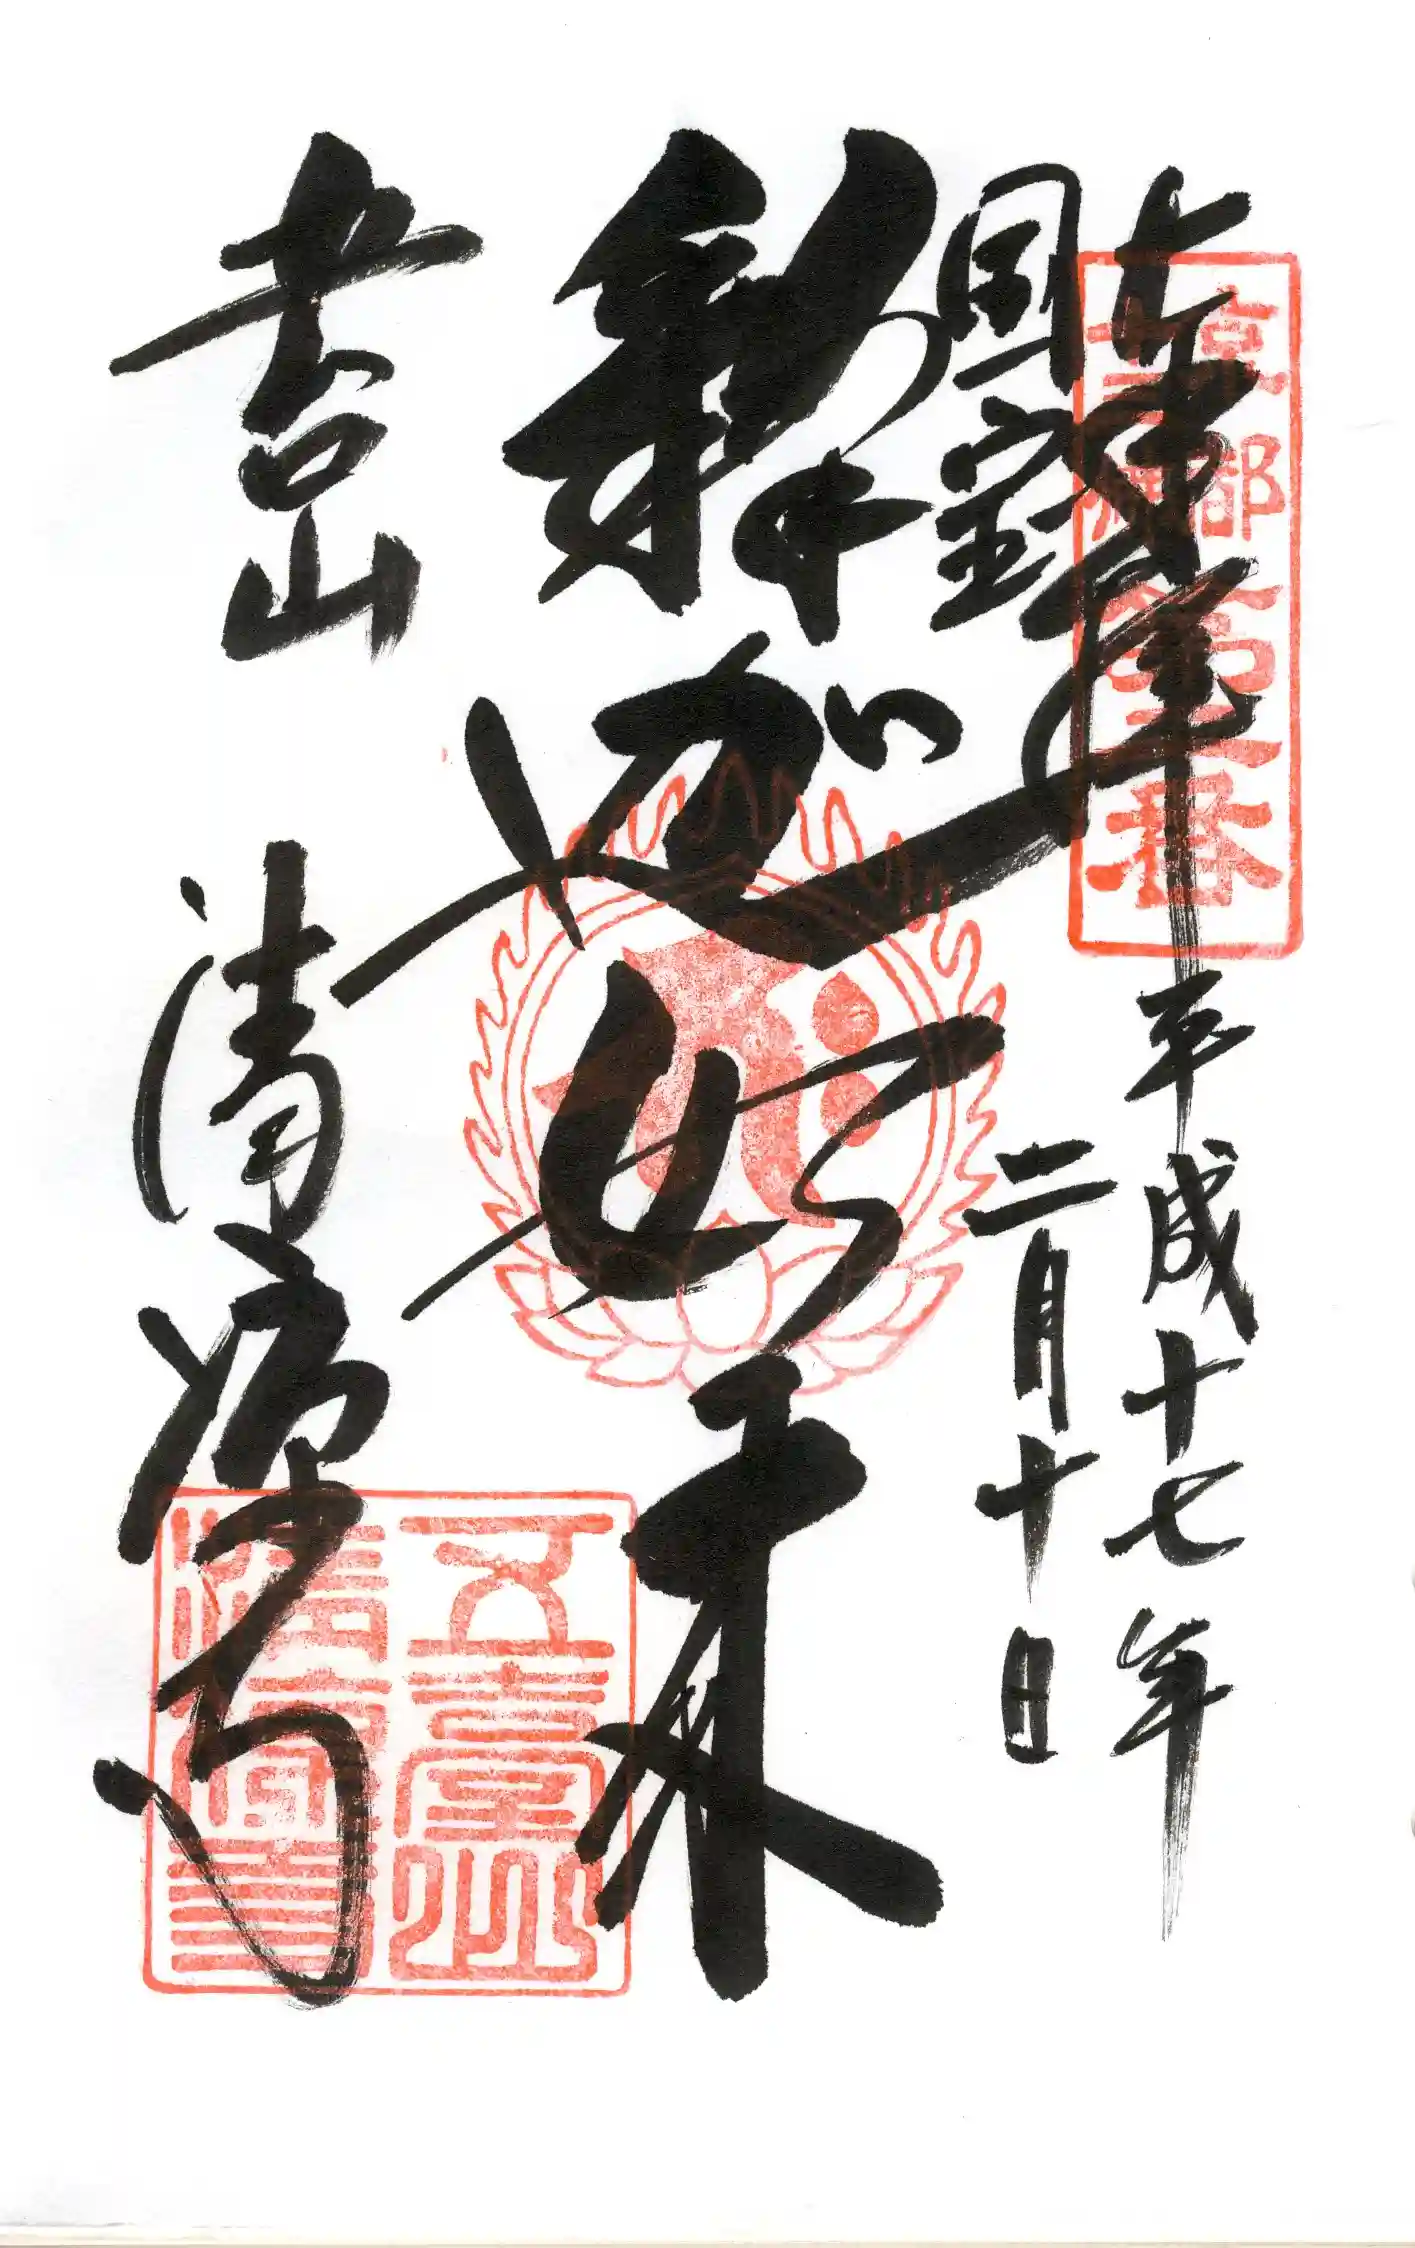 国宝
平成十七年
二月十日
釈迦如来
五台山
清凉寺
京都
十三佛
第二番
五臺山